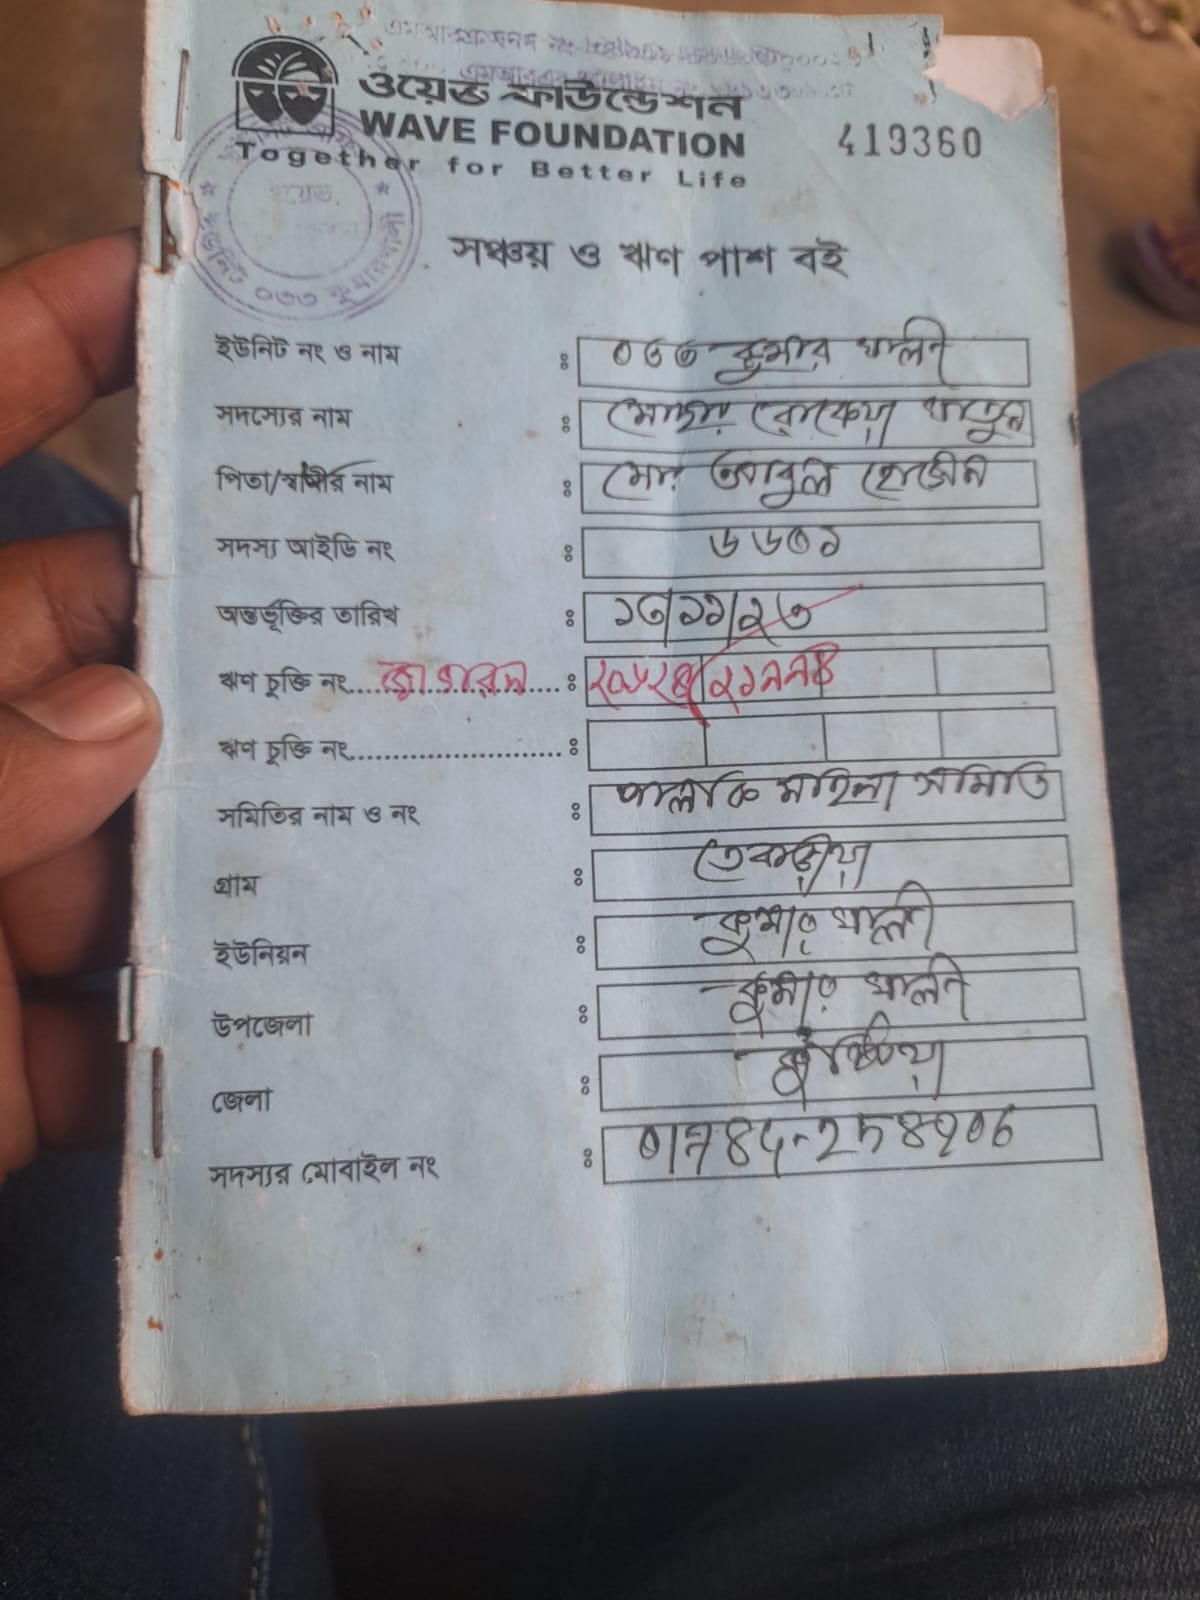 ওয়েভ ফাউন্ডেশন
WAVE FOUNDATION
Together for Better Life
419360
ইউনিট ০৩৩ কুমারখালী
সঞ্চয় ও ঋণ পাশ বই
ইউনিট নং ও নাম : ০৩৩ কুমার খালী
সদস্যের নাম : মোছাঃ রোকেয়া খাতুন
পিতা/স্বামীর নাম : মোঃ আবুল হোসেন
সদস্য আইডি নং : ৬৬৩১
অন্তর্ভূক্তির তারিখ : ১৩/১১/২৩
ঋণ চুক্তি নং জাগরন :
ঋণ চুক্তি নং :
সমিতির নাম ও নং : পালকি মহিলা সমিতি
গ্রাম :
ইউনিয়ন : কুমার খালী
উপজেলা : কুমার খালী
জেলা : কুষ্টিয়া
সদস্যর মোবাইল নং :